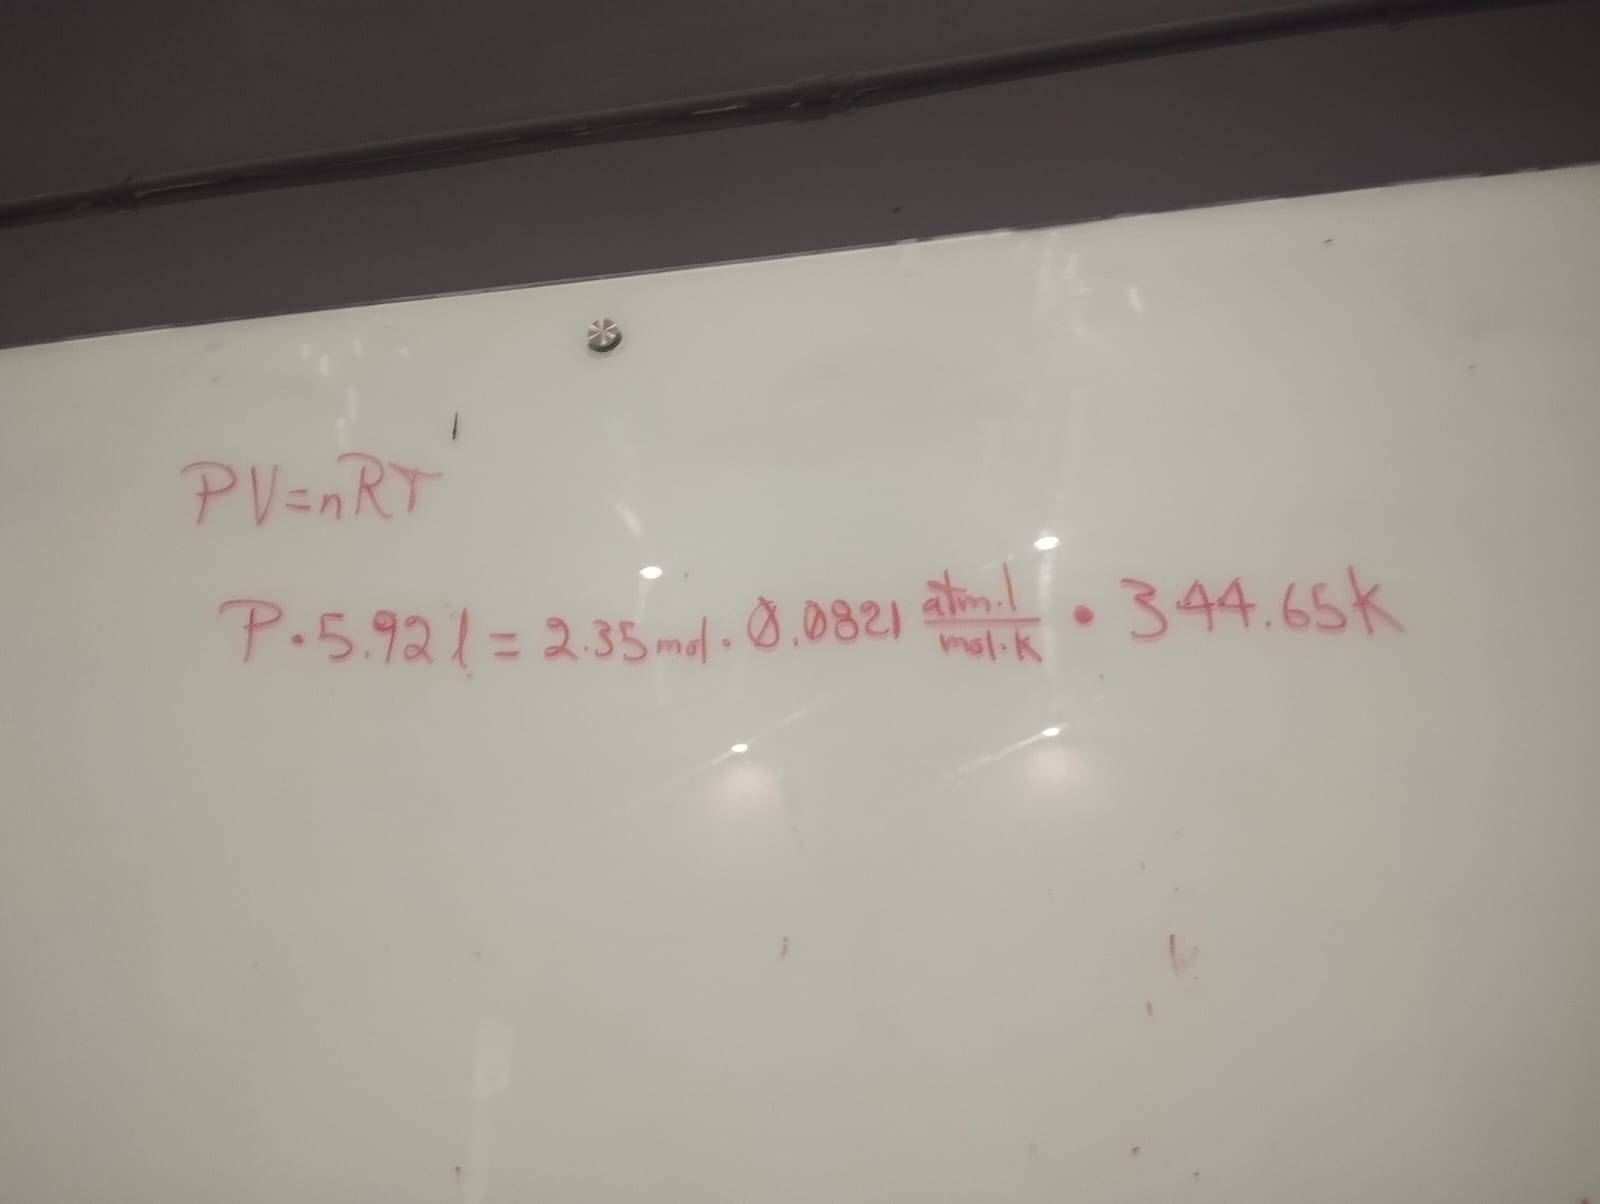 PV=nRT
P·5.92 l = 2.35 mol · 0.0821 atm.l/mol·K • 344.65K